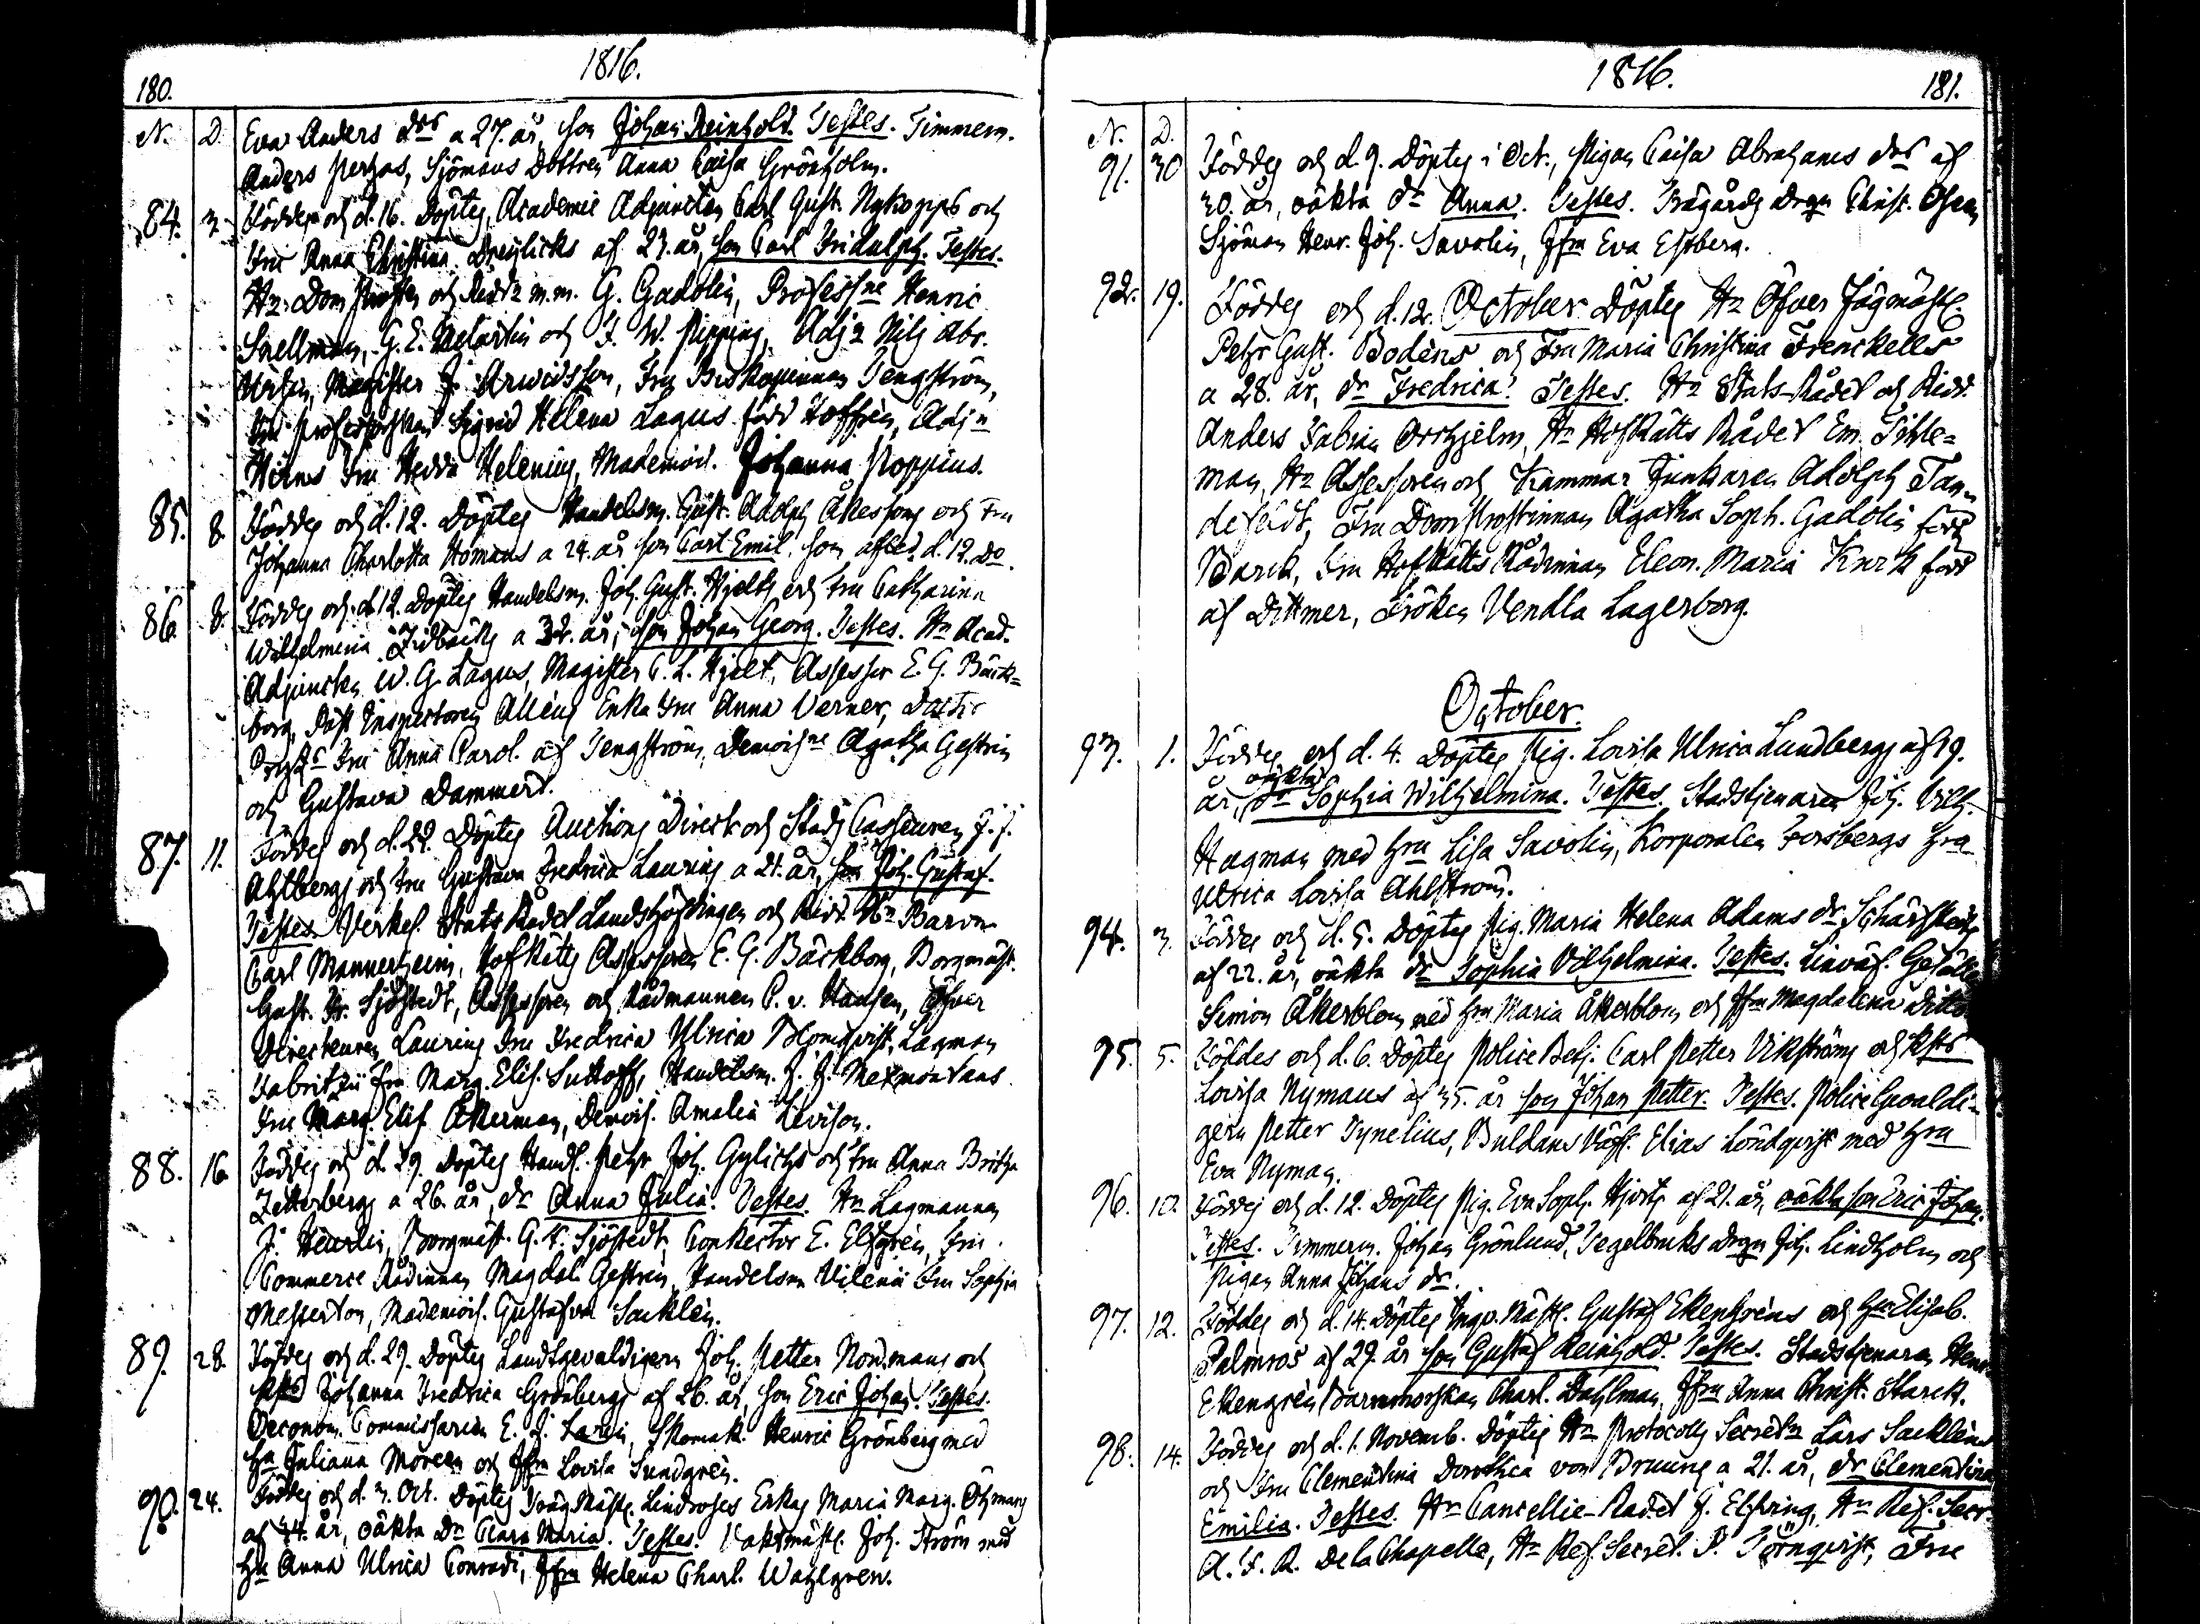 180.
1816.
N. D.
Eva Anders drs a 27. år, son Johan Reinhold. Testes. Timmerm.
Anders Sjömans Dottren Anna Caisa Grönholm.
84. 3. Föddes och d. 16. Döptes, Academie Adjuncten Carl Gust. Nykopps och
Fru Anna Christina af 23. år, son Carl Fridolph. Testes.
Hr Dom Prosten och Riddr m.m. G. Gadolin, Professrne Henric
Snellman, G. E. Melartin och F. W. Pipping, Adjn Nils Abr.
Magister J. Arwidsson, Fru Biskopinnan Tengström,
Fru Professorskan Sigrid Helena Lagus född Adjn
Fru Hedda Helenius, Mademois. Johanna Poppius.
85. 8. Föddes och d. 12. Döptes Handelsm. Gust. Adolph Åkessons och Fru
Johanna Charlotta Homans a 24. år son Carl Emil, som d. 12. Do.
86. 8. Föddes och d. 12. Döptes Handelsm. Joh. Gust. Hjelts och Fru Catharina
Wilhelmina a 32. år, son Johan Georg. Testes. Hr Acad.
Adjuncten W. G. Lagus, Magister C. L. Hjelt, Assessor E. G. Bäck=
borg, Post Inspectoren Enka Fru Anna Verner,
Fru Anna Carol. af Tengström, Demoislne Agatha Gestrin
och Gustava Dammert.
87. 11. Föddes och d. 22. Döptes Auctions Direct och Stads Casseuren J. J.
Ahlbergs och Fru Gustava Fredrica Laurins a 21. år, son Joh. Gustaf.
Testes. Verkel. Stats Rådet Landshöfdingen och Ridd. Hr Baron
Carl Mannerheim, Hofrätts Assessoren E. G. Bäckborg, Borgmäst.
Gust. Fr. Sjöstedt, Assessoren och Rådmannen P. v. Öfver
Directeuren Laurins Fru Fredrica Ulrica Blomqvist, Lagman
Fabritzii fru Marg. Elis. Suttoff, Handelsm. J. J. Mexmontans
Fru Marg. Elis Åkerman, Demois. Amalia Levison.
88. 16. Föddes och d. 29. Döptes Handl. Pehr Joh. Gylichs och Fru Anna Britha
Zetterbergs a 26. år, dr Anna Julia. Testes. Hr Lagmannen
J. Heurlin, Borgmäst. G. F. Sjöstedt, Conrector E. Elfgren, Fru
Commerce Rådinnan Magdal. Gestrin, Handelsm Vilenii Fru Sophia
Messerton, Mademois. Gustafva Sacklén.
89. 28. Föddes och d. 29. Döptes Landtgevaldigern Joh. Petter Nordmans och
Johanna Fredrica Grönbergs af 26. år, son Eric Johan. Testes.
Oeconom. Commissarien E. J. Skomak. Henric Grönberg med
hu Juliana och Jfru Lovisa Sundgren.
90. 24. Föddes och d. 3. Oct. Döptes Enkas Maria Marg. Öhmans
af 44. år, oäkta Dr Clara Maria. Testes. Vaktmäst. Joh. Ström med
hu Anna Ulrica Conradi, Jfru Helena Charl. Wahlgren.
1816.
181.
N. D.
91. 30 Föddes och d. 9. Döptes i Oct., Pigan Caisa Abrahams drs af
30. år, oäkta dr Anna. Testes. Trägårds Drgn Christ.
Sjöman Henr. Joh. Savolin, Jfru Eva Estberg.
92. 19. Föddes och d. 12. October Döptes Hr Öfver Jägmäst.
Pehr Gust. Bodéns och Fru Maria Christina Frenckells
a 28. år, dr Fredrica. Testes. Hr Stats-Rådet och Ridd.
Anders Fabian Orrhjelm, Hr HofRätts Rådet Em. Tihle=
man, Hr Assessoren och Kammar Junkaren Adolph Tan-
defeldt, Fru Dom Prostinnan Agatha Soph. Gadolin född
Barck, Fru HofRätts Rådinnan Eleon. Maria född
af Dittmer, Fröken Vendla Lagerborg.
October.
93. 1. Föddes och d. 4. Döptes Pig. Lovisa Ulrica Lundbergs af 19.
år, oäkta dr Sophia Wilhelmina. Testes. Stadstjenaren Joh. Vilh.
Hagman med hru Lisa Savolin, Korporalen Forsbergs hru
Ulrica Lovisa Ahlström.
94. 3. Föddes och d. 5. Döptes Pig. Maria Helena Adams dr
af 22. år, oäkta dr Sophia Vilhelmina. Testes. Linväf. Gesällen
Simon Åkerblom med hru Maria Åkerblom och Jfru Magdalena
95. 5. Föddes och d. 6. Döptes Police Betj. Carl Petter Vikströms och
Lovisa Nymans af 35. år son Johan Petter. Testes. Police Gevaldi-
gern Petter Tynelius, Elias Löndqvist med hru
Eva Nyman.
96. 10. Föddes och d. 12. Döptes Pig. Eva Soph. Hjorts af 21. år, oäkta son Eric Johan.
Testes. Timmerm. Johan Grönlund, Tegelbruks Drgn Joh. Lindholm och
Pigan Anna Johans dr.
97. 12. Föddes och d. 14. Döptes Gustaf Ekengréns och hu Elisab.
Palmros af 29. år son Gustaf Reinhold. Testes. Stadstjenaren
Ekengrén, Barnmorskan Charl. Dahlman, Jfru Anna Christ. Starck.
98. 14. Föddes och d. 1. Novemb. Döptes Hr Protocolls Secretn Lars Sackléns
och Fru Clementina Dorothea von Bruuns a 21. år, dr Clementina
Emilia. Testes. Hr Cancellie-Rådet J. Elfving, Hr Ref. Secr.
A. F. R. De la Chapelle, Hr Ref. Secret. P. Törnqvist, Fru